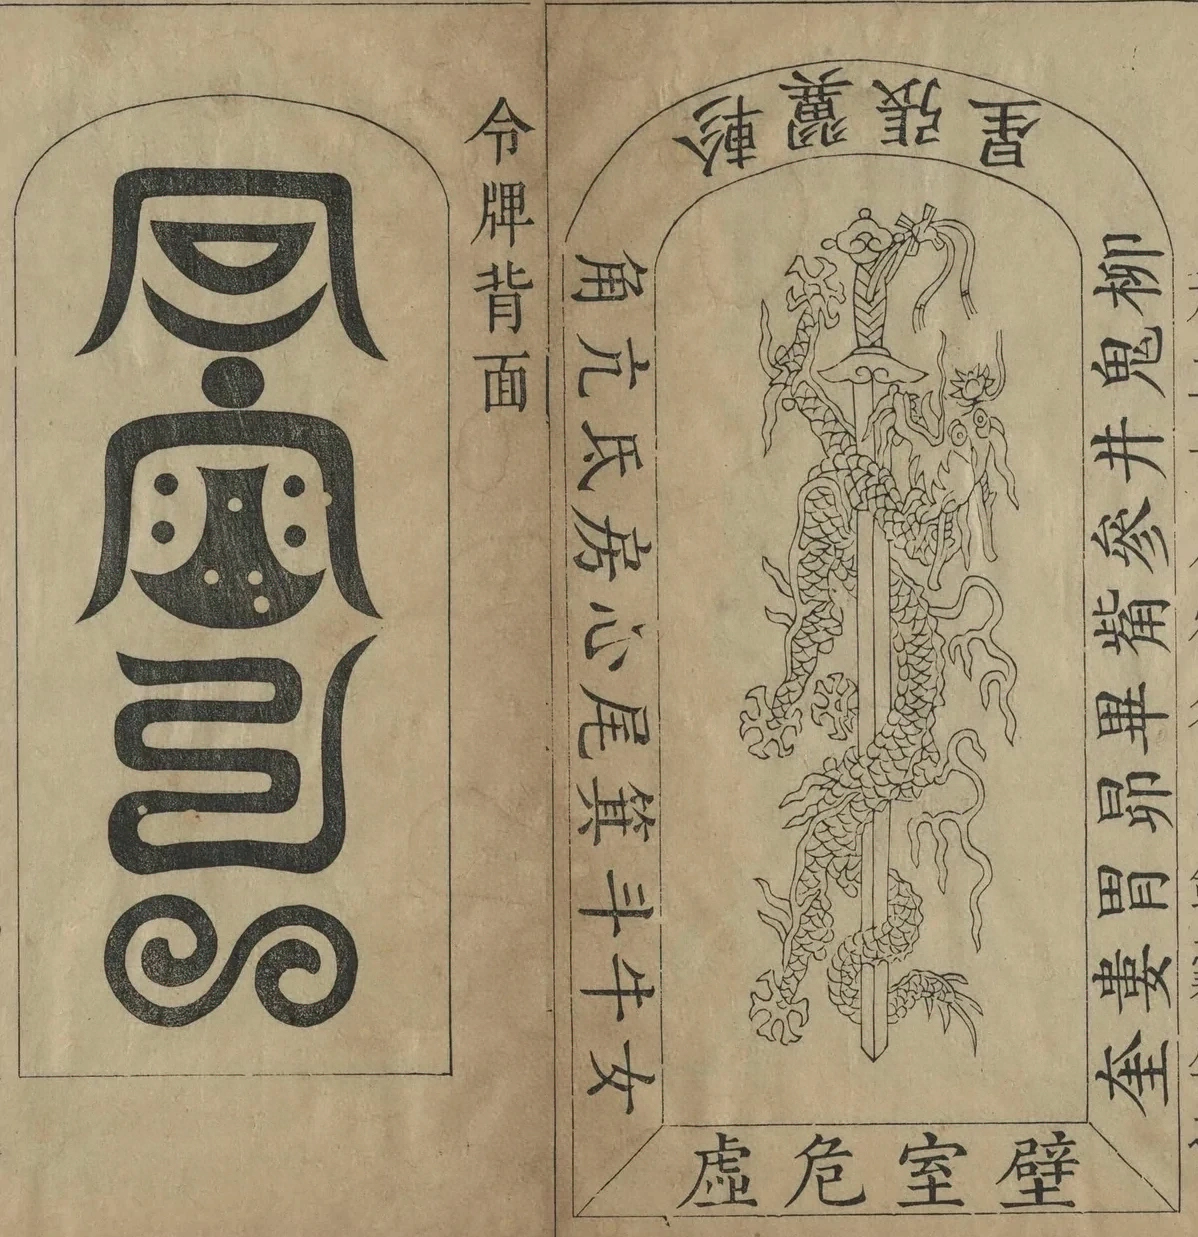 角亢氐房心尾箕斗牛女
虛危室壁
奎婁胃昴畢觜參井鬼柳
星張翼軫
令牌背面